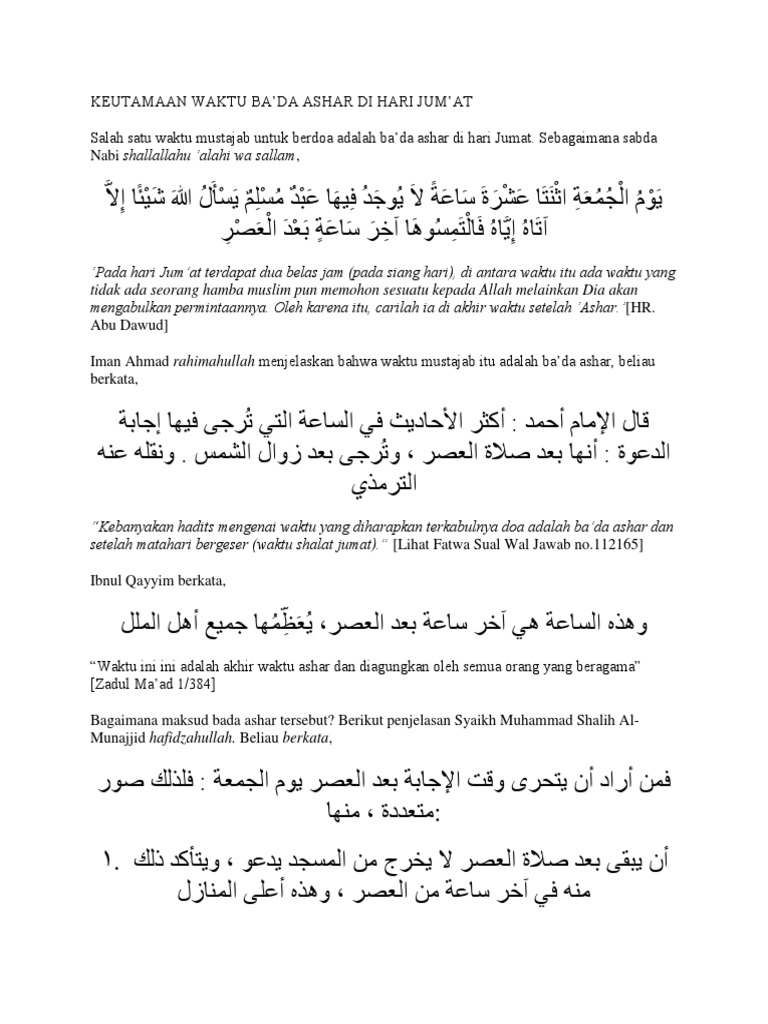 KEUTAMAAN WAKTU BA’DA ASHAR DI HARI JUM’AT
Salah satu waktu mustajab untuk berdoa adalah ba’da ashar di hari Jumat. Sebagaimana sabda
Nabi shallallahu ‘alahi wa sallam,
يَوْمُ الْجُمُعَةِ اثْنَتَا عَشْرَةَ سَاعَةً لاَ يُوجَدُ فِيهَا عَبْدٌ مُسْلِمٌ يَسْأَلُ اللهَ شَيْئًا إِلاَّ
آتَاهُ إِيَّاهُ فَالْتَمِسُوهَا آخِرَ سَاعَةٍ بَعْدَ الْعَصْرِ
‘Pada hari Jum‘at terdapat dua belas jam (pada siang hari), di antara waktu itu ada waktu yang
tidak ada seorang hamba muslim pun memohon sesuatu kepada Allah melainkan Dia akan
mengabulkan permintaannya. Oleh karena itu, carilah ia di akhir waktu setelah ‘Ashar.‘[HR.
Abu Dawud]
Iman Ahmad rahimahullah menjelaskan bahwa waktu mustajab itu adalah ba’da ashar, beliau
berkata,
قال الإمام أحمد : أكثر الأحاديث في الساعة التي تُرجى فيها إجابة
الدعوة : أنها بعد صلاة العصر ، وتُرجى بعد زوال الشمس . ونقله عنه
الترمذي
“Kebanyakan hadits mengenai waktu yang diharapkan terkabulnya doa adalah ba‘da ashar dan
setelah matahari bergeser (waktu shalat jumat).“ [Lihat Fatwa Sual Wal Jawab no.112165]
Ibnul Qayyim berkata,
وهذه الساعة هي آخر ساعة بعد العصر، يُعَظِّمُها جميع أهل الملل
“Waktu ini ini adalah akhir waktu ashar dan diagungkan oleh semua orang yang beragama”
[Zadul Ma’ad 1/384]
Bagaimana maksud bada ashar tersebut? Berikut penjelasan Syaikh Muhammad Shalih Al-
Munajjid hafidzahullah. Beliau berkata,
فمن أراد أن يتحرى وقت الإجابة بعد العصر يوم الجمعة : فلذلك صور
متعددة ، منها:
١. أن يبقى بعد صلاة العصر لا يخرج من المسجد يدعو ، ويتأكد ذلك
منه في آخر ساعة من العصر ، وهذه أعلى المنازل